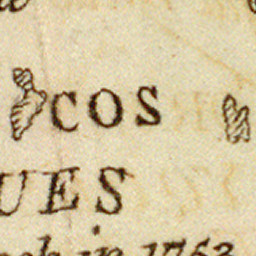 COS
UES
in 1763